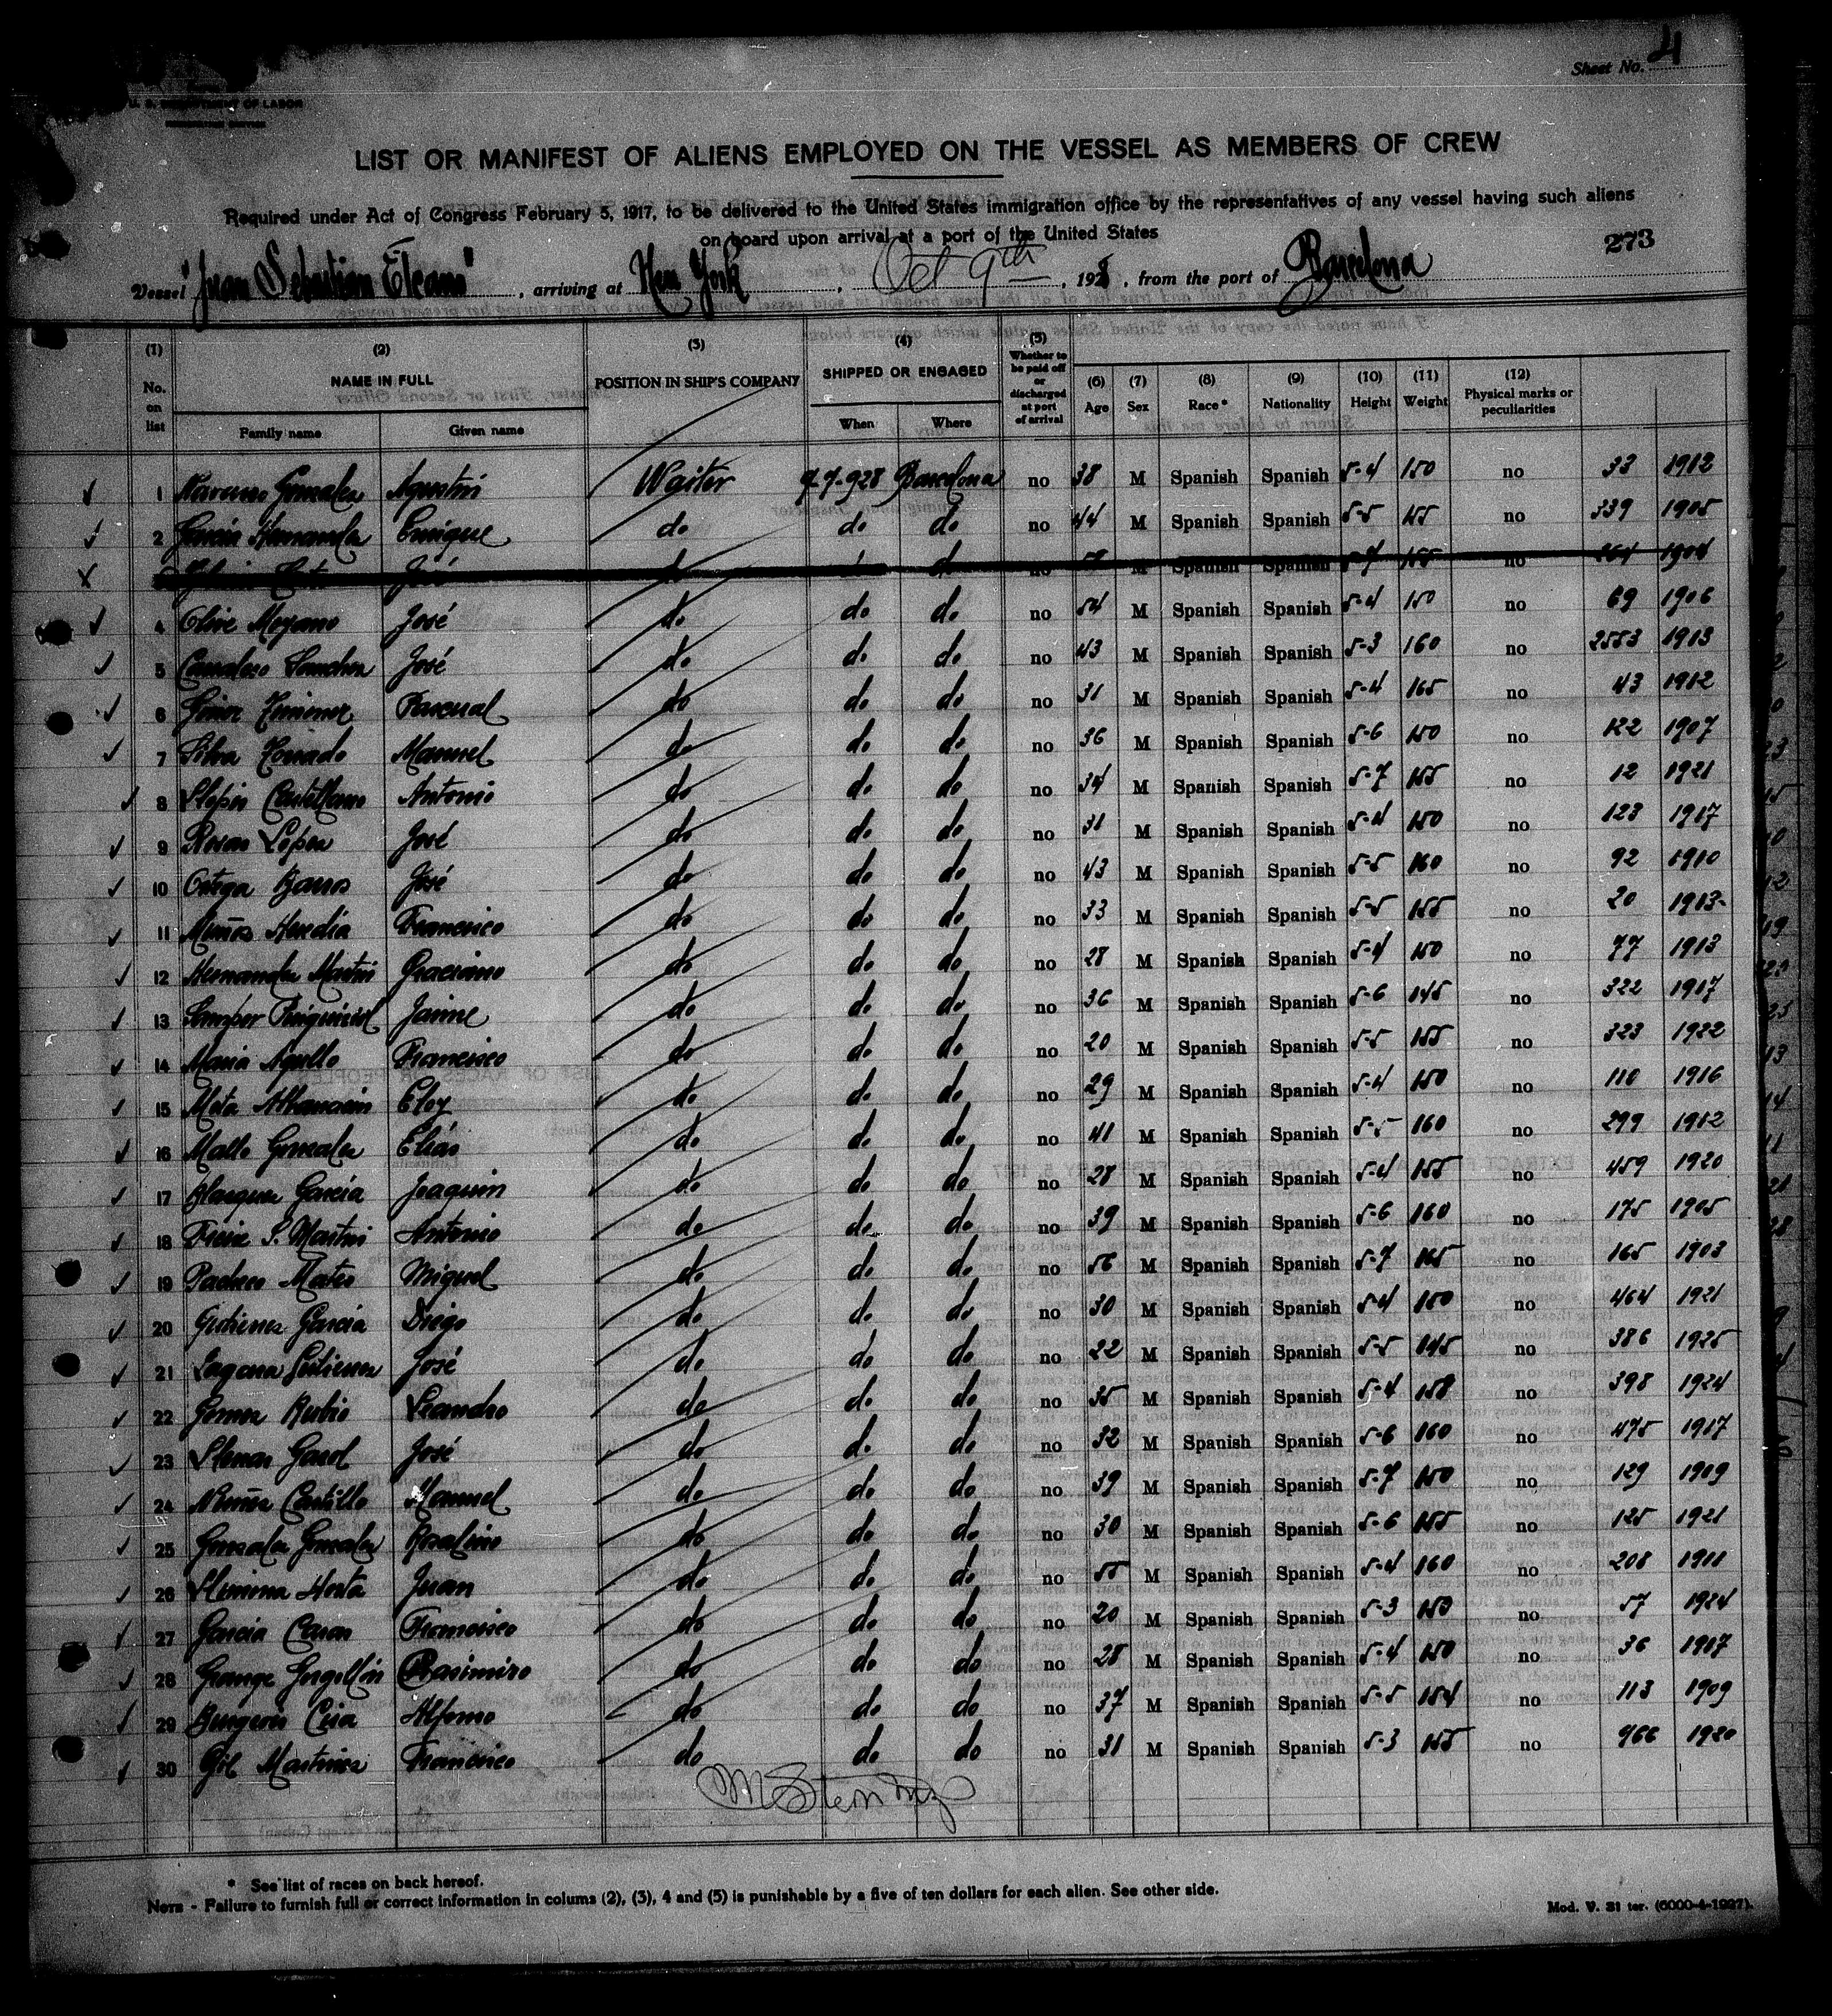 Sheet No. 4
U. S. DEPARTMENT OF LABOR
LIST OR MANIFEST OF ALIENS EMPLOYED ON THE VESSEL AS MEMBERS OF CREW
Required under Act of Congress February 5, 1917, to be delivered to the United States immigration office by the representatives of any vessel having such aliens
on board upon arrival at a port of the United States
273
Vessel "Juan Sebastian Elcano", arriving at New York, Oct 9th, 1928, from the port of Barcelona
(1) No. on list (2) NAME IN FULL Family name Given name (3) POSITION IN SHIP'S COMPANY (4) SHIPPED OR ENGAGED When Where (5) Whether to be paid off or discharged at port of arrival (6) Age (7) Sex (8) Race* (9) Nationality (10) Height (11) Weight (12) Physical marks or peculiarities
1 Gonzalez Agustin Waiter 7-7-928 Barcelona no 38 M Spanish Spanish 5-4 150 no 33 1912
2 Garcia Hernandez Enrique do do do no 44 M Spanish Spanish 5-5 155 no 339 1905
José do do do no M Spanish Spanish 155 no 264 1904
4 Olive Moyano José do do do no 54 M Spanish Spanish 5-4 150 no 69 1906
5 Sanchez José do do do no 43 M Spanish Spanish 5-3 160 no 2553 1913
6 Giner Ximenez Pascual do do do no 31 M Spanish Spanish 5-4 165 no 43 1912
7 Silva Manuel do do do no 36 M Spanish Spanish 5-6 150 no 122 1907
8 Llopis Castellano Antonio do do do no 34 M Spanish Spanish 5-7 155 no 12 1921
9 Rosas Lopez José do do do no 31 M Spanish Spanish 5-4 150 no 123 1917
10 Ortega Banos José do do do no 43 M Spanish Spanish 5-5 160 no 92 1910
11 Muñoz Heredia Francisco do do do no 33 M Spanish Spanish 5-5 155 no 20 1913
12 Hernandez Martin Graciano do do do no 28 M Spanish Spanish 5-4 150 no 77 1913
13 Semper Jaime do do do no 36 M Spanish Spanish 5-6 145 no 322 1917
14 Maria Agullo Francisco do do do no 20 M Spanish Spanish 5-5 155 no 323 1922
15 Mota Eloy do do do no 29 M Spanish Spanish 5-4 150 no 110 1916
16 Mallo Gonzalez Elias do do do no 41 M Spanish Spanish 5-5 160 no 299 1912
17 Blazquez Garcia Joaquin do do do no 28 M Spanish Spanish 5-4 155 no 459 1920
18 S. Martin Antonio do do do no 39 M Spanish Spanish 5-6 160 no 175 1905
19 Pacheco Mateo Miguel do do do no 56 M Spanish Spanish 5-7 165 no 165 1903
20 Gutierrez Garcia Diego do do do no 30 M Spanish Spanish 5-4 150 no 464 1921
21 Gutierrez José do do do no 22 M Spanish Spanish 5-5 145 no 386 1925
22 Gomez Rubio Leandro do do do no 35 M Spanish Spanish 5-4 158 no 398 1924
23 José do do do no 32 M Spanish Spanish 5-6 160 no 475 1917
24 Nuñez Castillo Manuel do do do no 39 M Spanish Spanish 5-7 150 no 129 1909
25 Gonzalez Gonzalez Rosalino do do do no 30 M Spanish Spanish 5-6 155 no 125 1921
26 Horta Juan do do do no 55 M Spanish Spanish 5-4 160 no 208 1911
27 Garcia Francisco do do do no 20 M Spanish Spanish 5-3 153 no 57 1924
28 Casimiro do do do no 28 M Spanish Spanish 5-4 150 no 36 1917
29 Alfonso do do do no 37 M Spanish Spanish 5-5 154 no 113 1909
30 Gil Martinez Francisco do do do no 31 M Spanish Spanish 5-3 155 no 966 1920
* See list of races on back hereof.
NOTE - Failure to furnish full or correct information in colums (2), (3), 4 and (5) is punishable by a five of ten dollars for each alien. See other side.
Mod. V. 31 ter. (6000-4-1927).